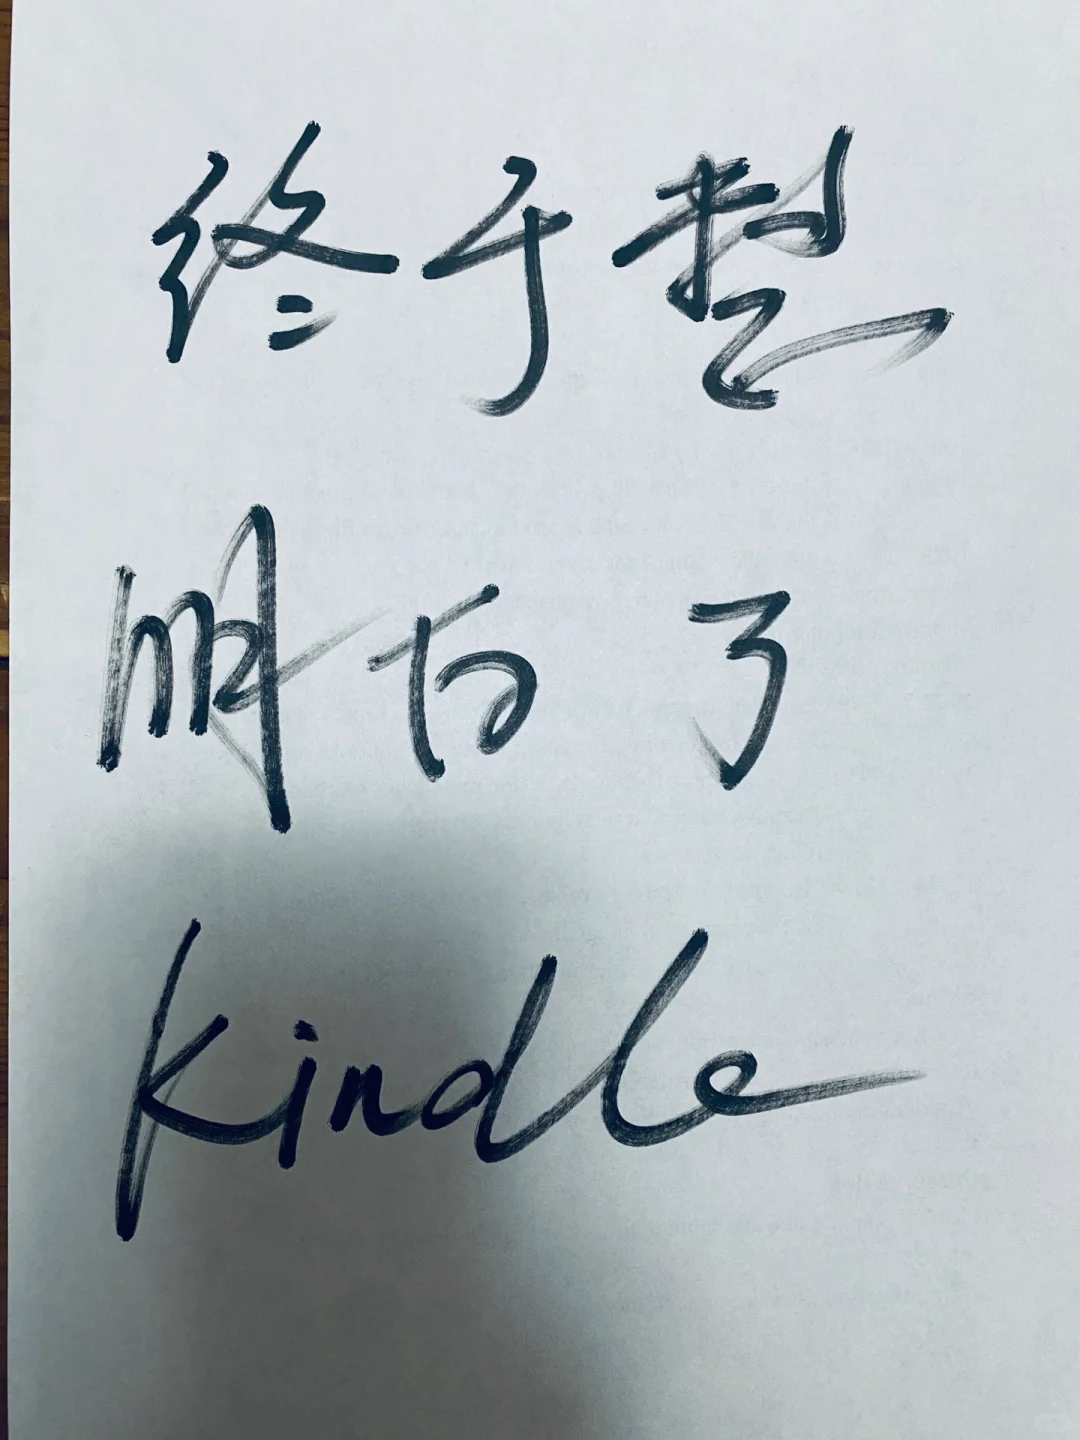 终于整
明白了
kindle